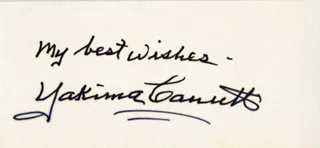 My best wishes -
Yakima Canutt